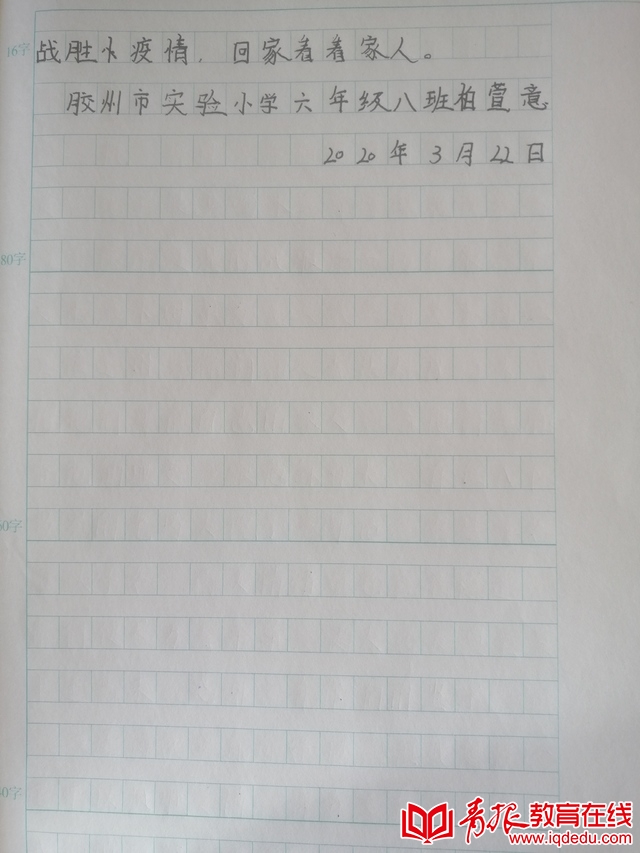 16字
战胜疫情，回家看看家人。
胶州市实验小学六年级八班柏萱意
2020年3月22日
80字
青报教育在线
www.iqdedu.com